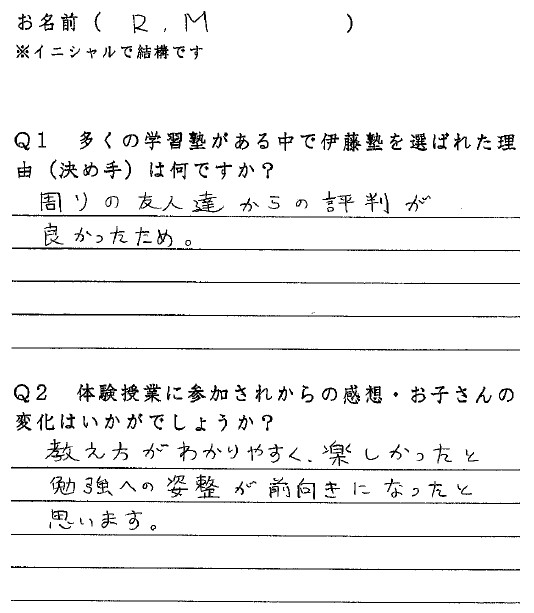 お名前（ R.M ）
※イニシャルで結構です
Q1 多くの学習塾がある中で伊藤塾を選ばれた理
由（決め手）は何ですか？
周りの友人達からの評判が
良かったため。
Q2 体験授業に参加されからの感想・お子さんの
変化はいかがでしょうか？
教え方がわかりやすく、楽しかったと
勉強への姿整が前向きになったと
思います。